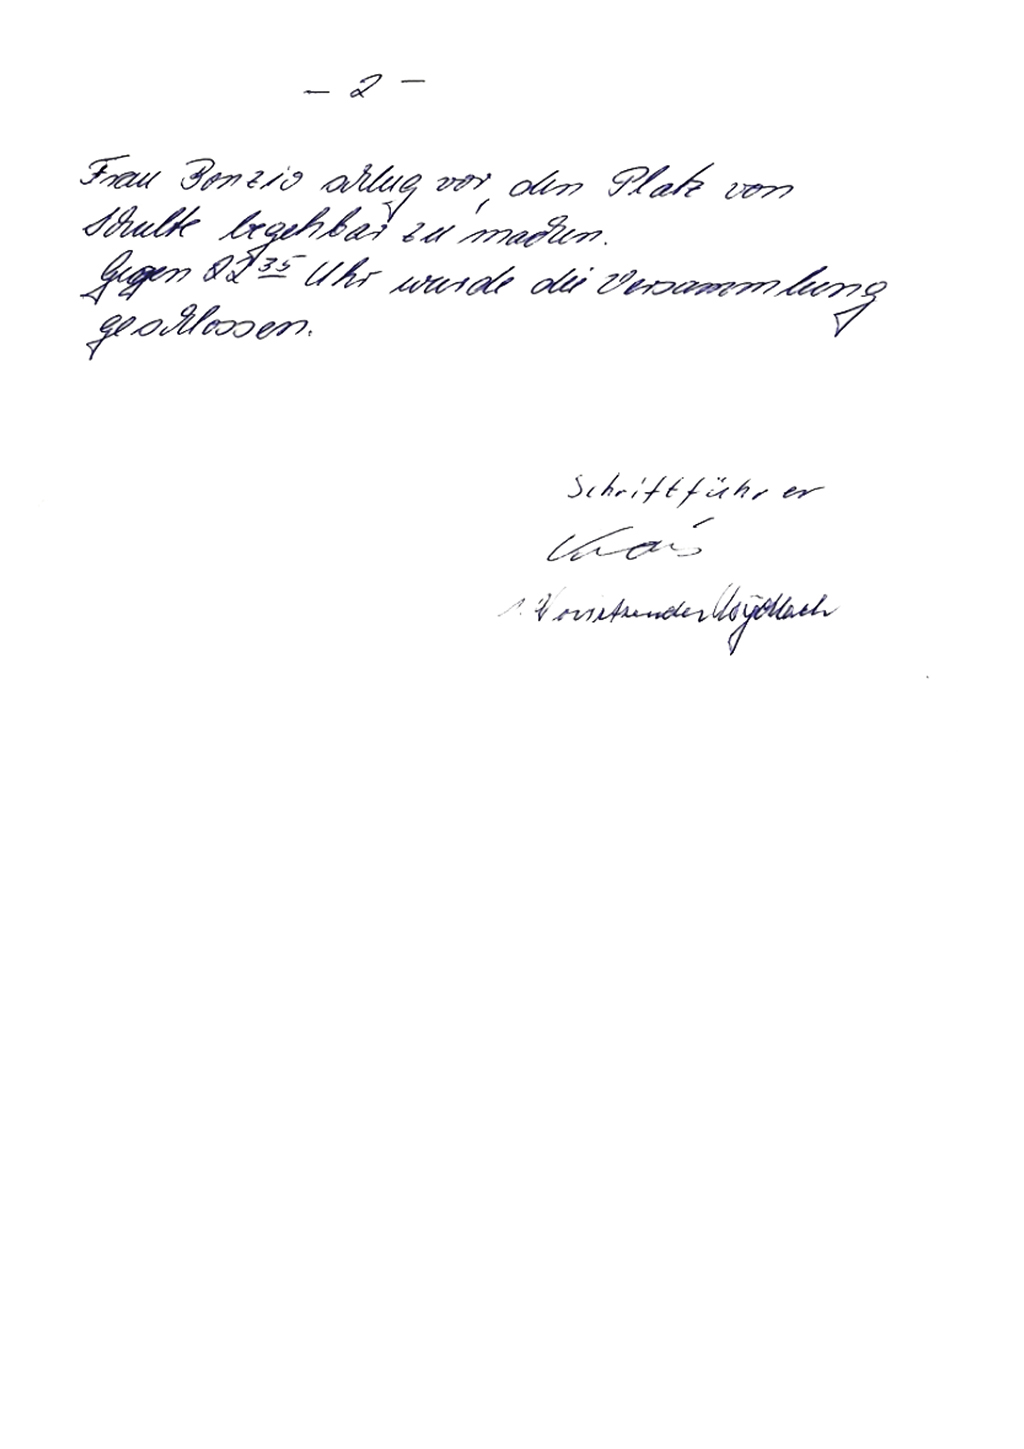 - 2 -
Frau Bonzio schlug vor, den Platz von
Schulte begehbar zu machen.
Gegen 22 35 Uhr wurde die Versammlung
geschlossen.
Schriftführer
1. Vorsitzender